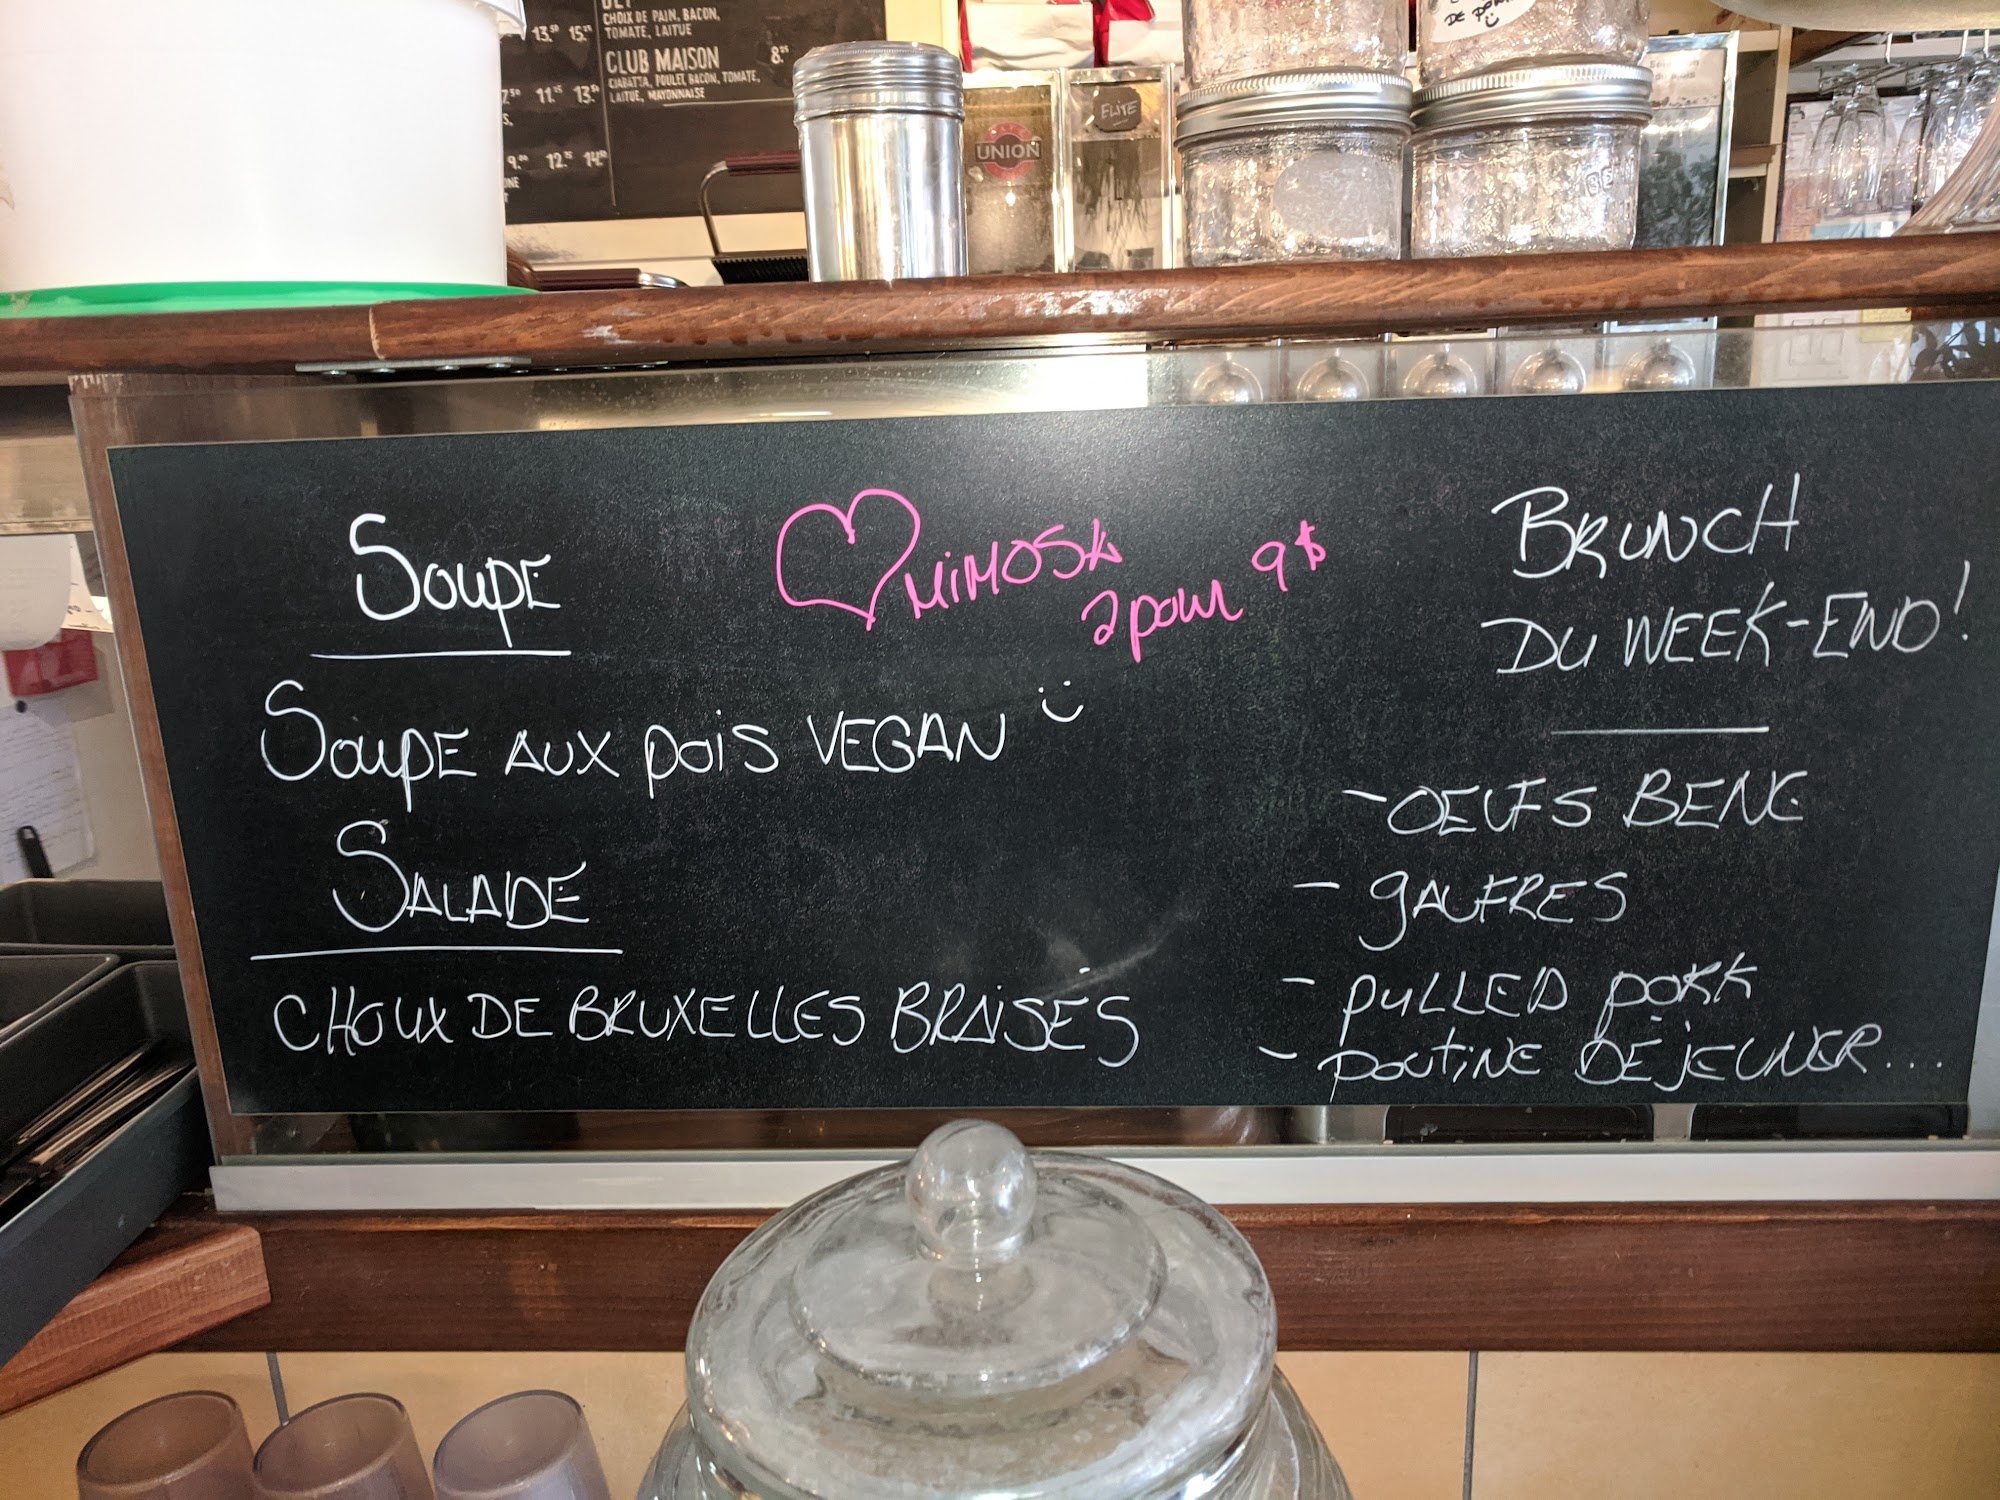 CHOIX DE PAIN, BACON,
TOMATE, LAITUE
CLUB MAISON 8.25
CIABATTA, POULET, BACON, TOMATE,
LAITUE, MAYONNAISE
13.50 15.25
11.75 13.50
9.00 12.75 14.00
UNION
ELITE
SOUPE
SOUPE AUX POIS VEGAN
SALADE
CHOUX DE BRUXELLES BRAISÉS
MIMOSA
2 pour 9$
BRUNCH
DU WEEK-END!
- OEUFS BENE
- GAUFRES
- PULLED PORK
- POUTINE DÉJEUNER...